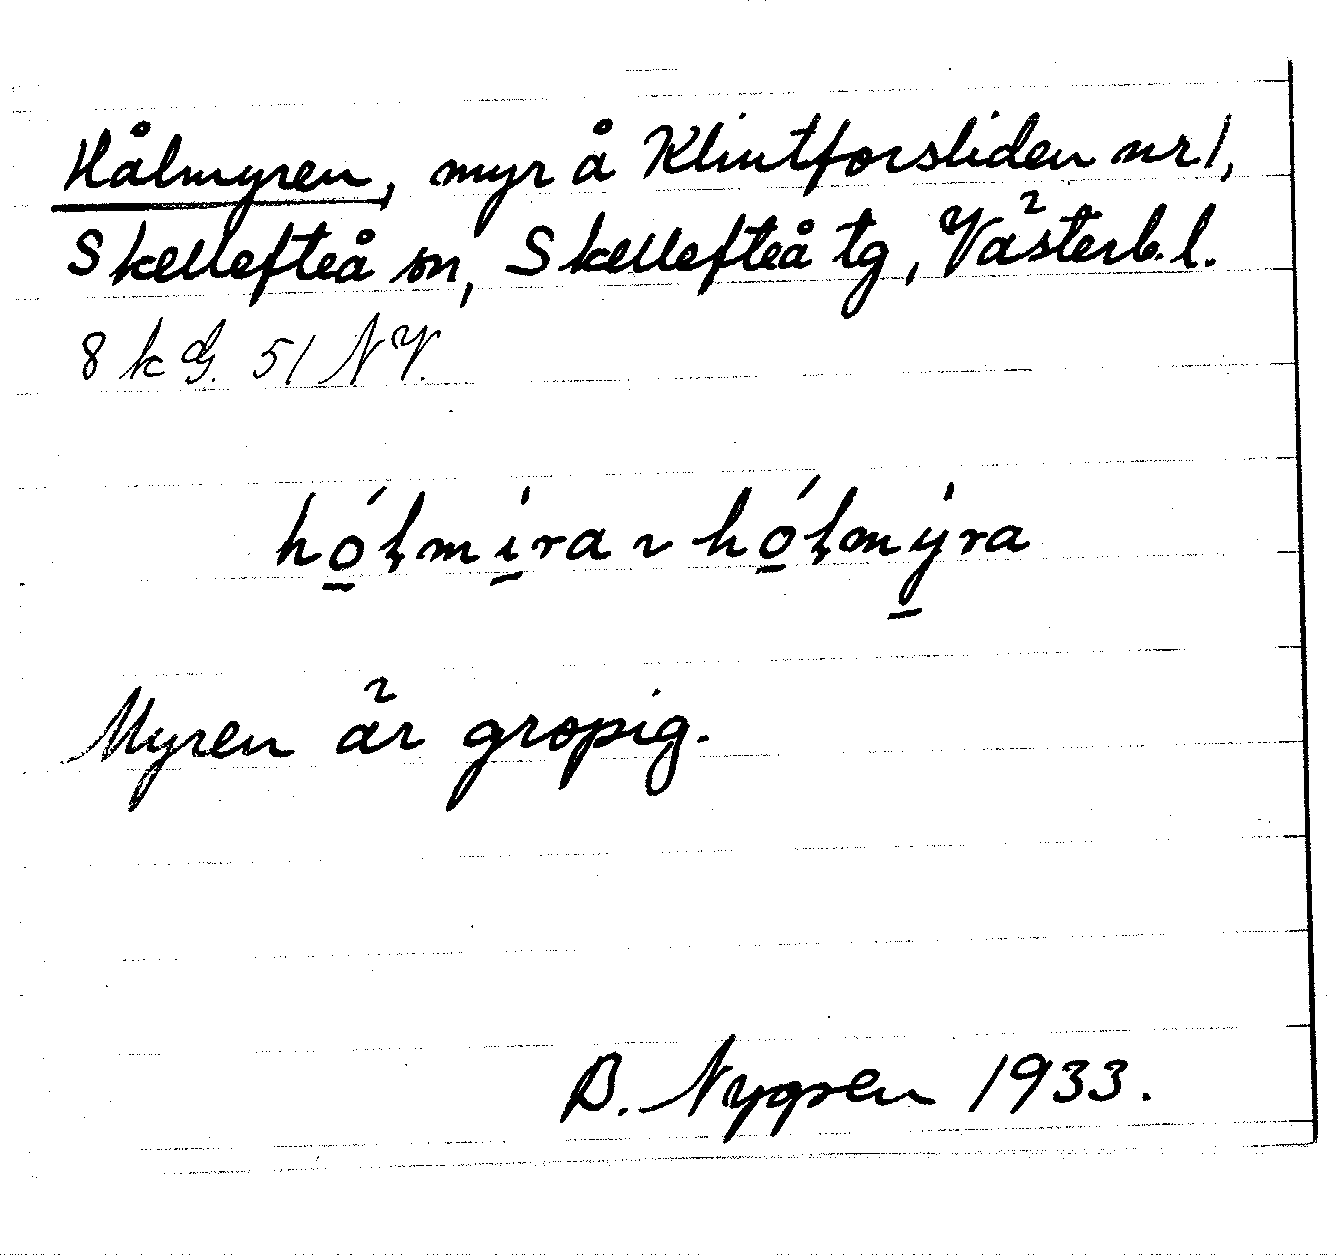 Hålmyren, myr å Klintforsliden nr 1,
Skellefteå sn, Skellefteå tg, Västerb. l.
8 k G. 51 NV.
hó̲ḷmi̲̍ra ~ hó̲ḷmy̲̍ra
Myren är gropig.
B. Nygren 1933.